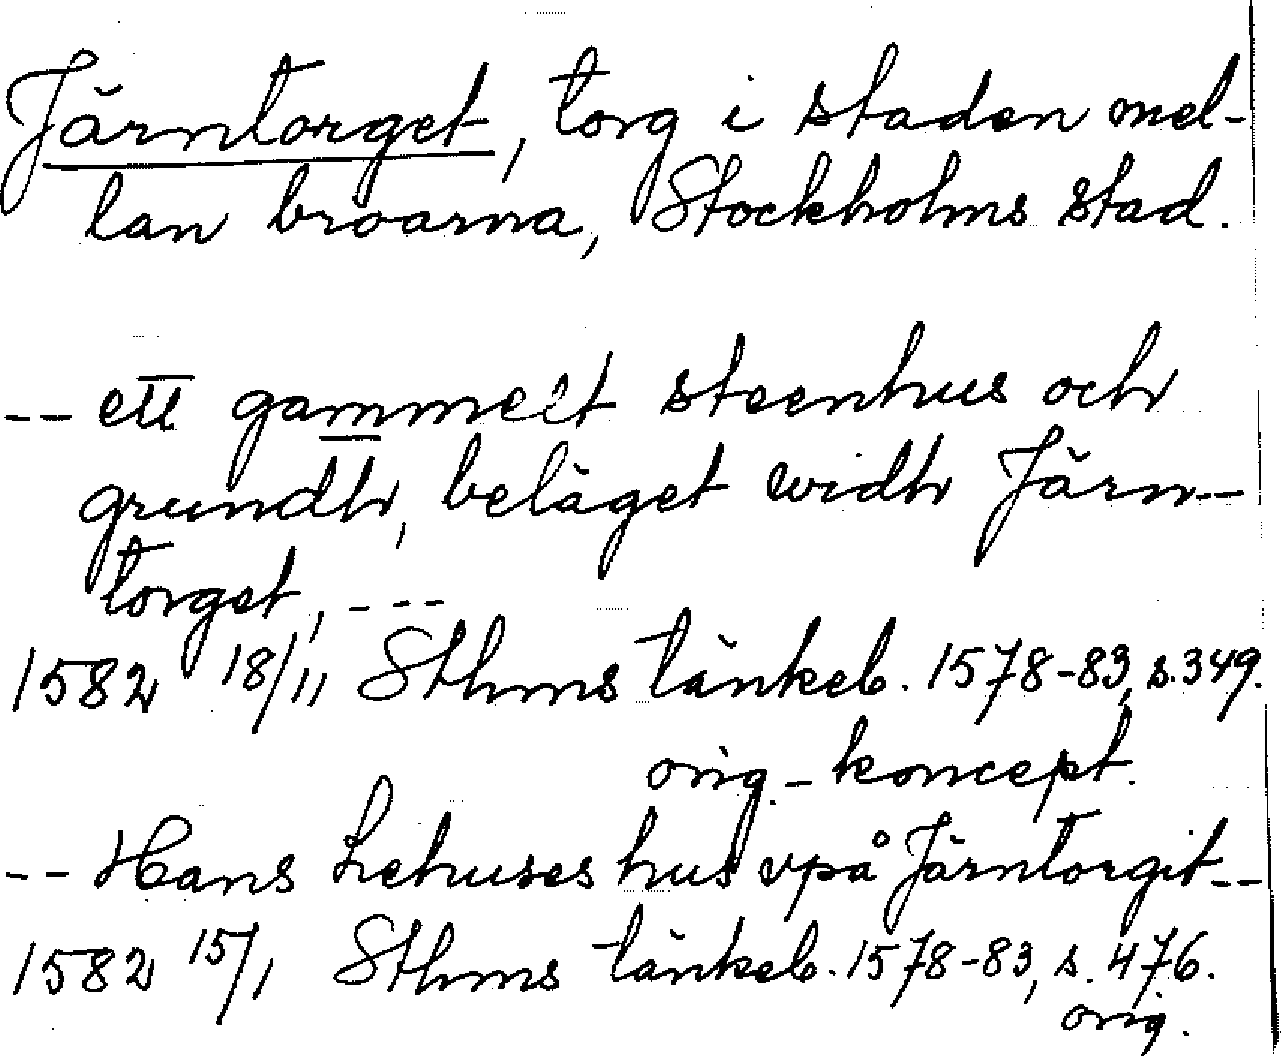 Järntorget, torg i staden mel-
lan broarna, Stockholms stad.
-- ett gammelt steenhus och
grundh, beläget widh Järn-
torget, ---
1582 18/11 Sthms tänkeb. 1578-83, s. 349.
orig.-koncept.
-- Hans Lehuses hus vpå Järntorgit--
1582 15/1 Sthms tänkeb. 1578-83, s. 476.
orig.